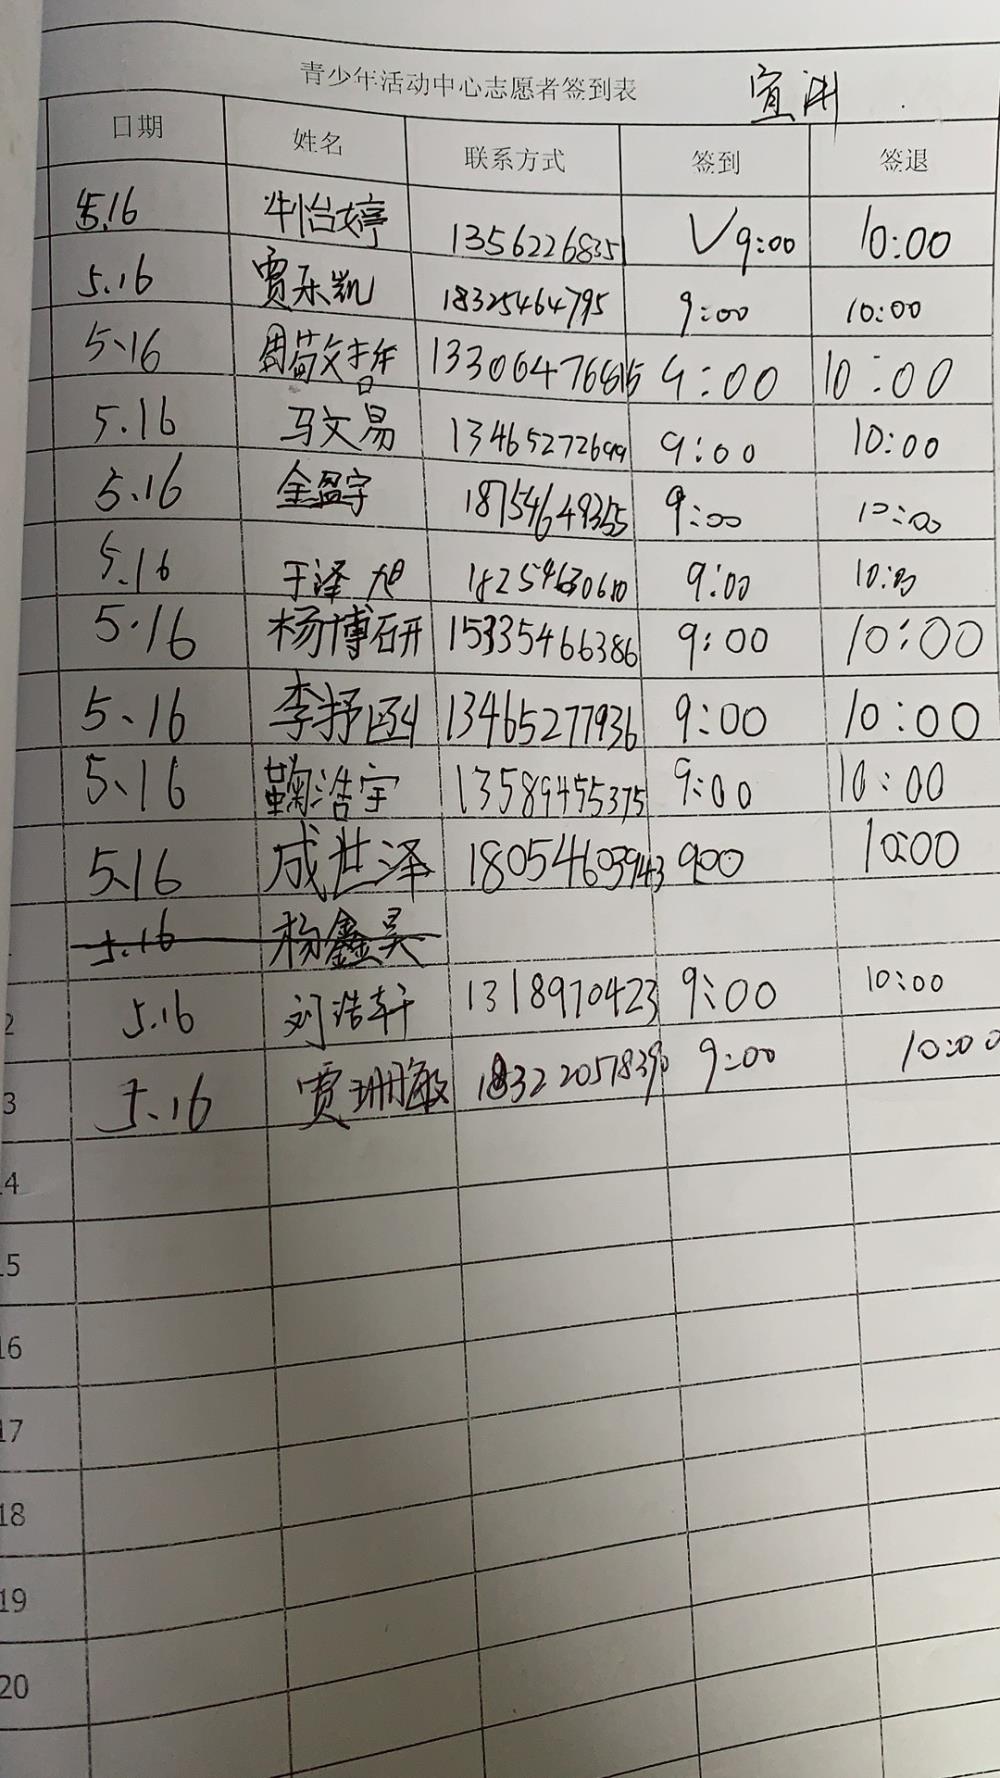 青少年活动中心志愿者签到表
日期 姓名 联系方式 签到 签退
5.16 牛怡婷 1356226835 √9:00 10:00
5.16 贾乐凯 18325464795 9:00 10:00
5.16 周 9:00 10:00
5.16 马文易 13465272699 9:00 10:00
5.16 金盈宇 18754649355 9:00 10:00
5.16 于泽旭 18254630610 9:00
5.16 杨博研 15335466386 9:00 10:00
5.16 李抒函 13465277936 9:00 10:00
5.16 鞠浩宇 13589455375 9:00 10:00
5.16 成世泽 18054603943 9:00 10:00
5.16 杨鑫昊
2 5.16 刘浩轩 1318970423 9:00 10:00
3 5.16 贾珊敏 18322057839 9:00 10:00
14
15
16
17
18
19
20